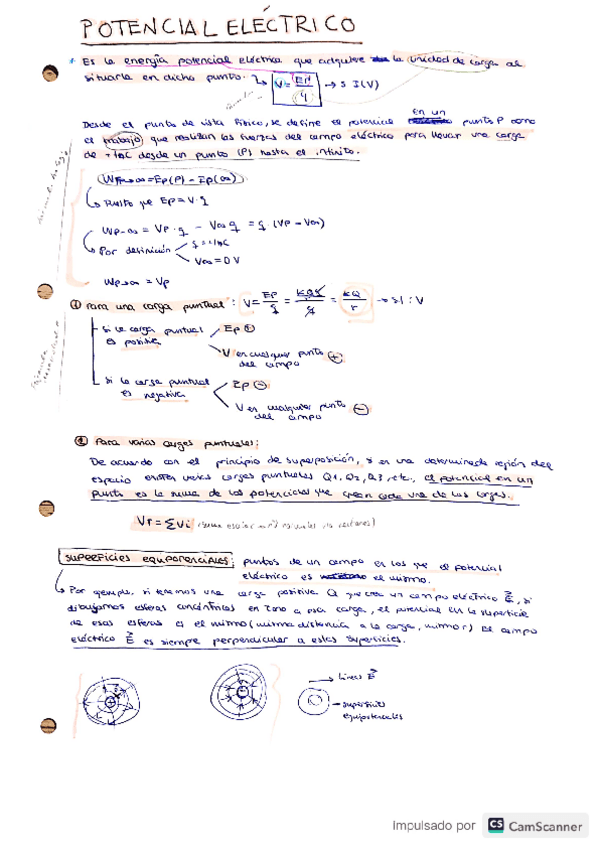 POTENCIAL ELÉCTRICO
Es la energía potencial eléctrica que adquiere la unidad de carga al
situarla en dicho punto. V = Ep/q → SI (V)
Desde el punto de vista físico, se define el potencial en un punto P como
el trabajo que realizan las fuerzas del campo eléctrico para llevar una carga
de +1C desde un punto (P) hasta el infinito.
WP→∞ = Ep(P) - Ep(∞)
Puesto que Ep = V·q
WP→∞ = Vp·q - V∞q = q·(Vp - V∞)
Por definición q = +1C
V∞ = 0V
WP→∞ = Vp
① Para una carga puntual: V = Ep/q = KQq/r/q = KQ/r → SI: V
Si la carga puntual es positiva
Ep ⊕
V en cualquier punto del campo ⊕
Si la carga puntual es negativa
Ep ⊖
V en cualquier punto del campo ⊖
② Para varias cargas puntuales:
De acuerdo con el principio de superposición, si en una determinada región del
espacio existen varias cargas puntuales Q1, Q2, Q3, etc., el potencial en un
punto es la suma de los potenciales que crean cada una de las cargas.
VT = ΣVi
SUPERFICIES EQUIPOTENCIALES: puntos de un campo en los que el potencial
eléctrico es el mismo.
Por ejemplo, si tenemos una carga positiva Q que crea un campo eléctrico E⃗, si
dibujamos esferas concéntricas en torno a esa carga, el potencial en la superficie
de esas esferas es el mismo (misma distancia a la carga, mismo r) El campo
eléctrico E⃗ es siempre perpendicular a estas superficies.
→ líneas E⃗
→ superficies
equipotenciales
Impulsado por CS CamScanner